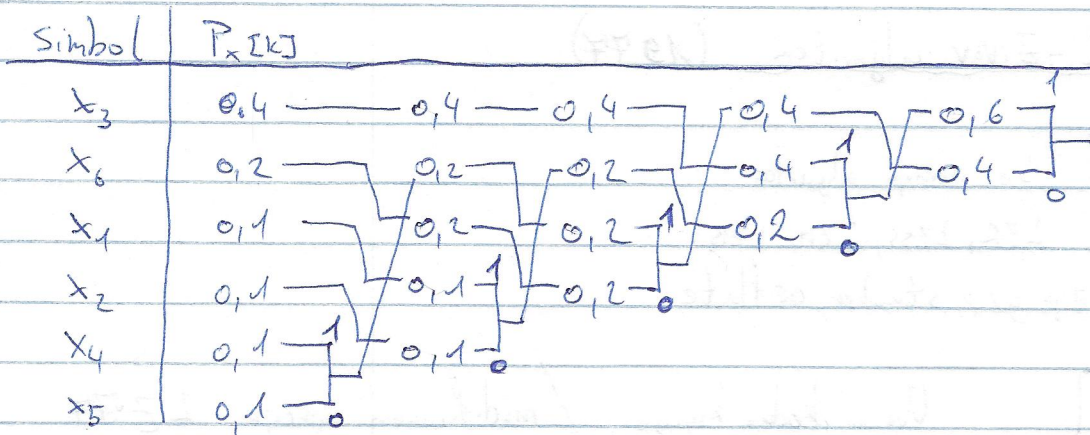 Simbol Pₓ[k]
1
x₃ 0.4 0,4 0,4 0,4 0,6
x₆ 0,2 0,2 0,2 1 0,4 0,4 0
x₁ 0,1 0,2 0,2 1 0,2 0
x₂ 0,1 0,1 1 0,2 0
x₄ 0,1 1 0,1 0
x₅ 0,1 0